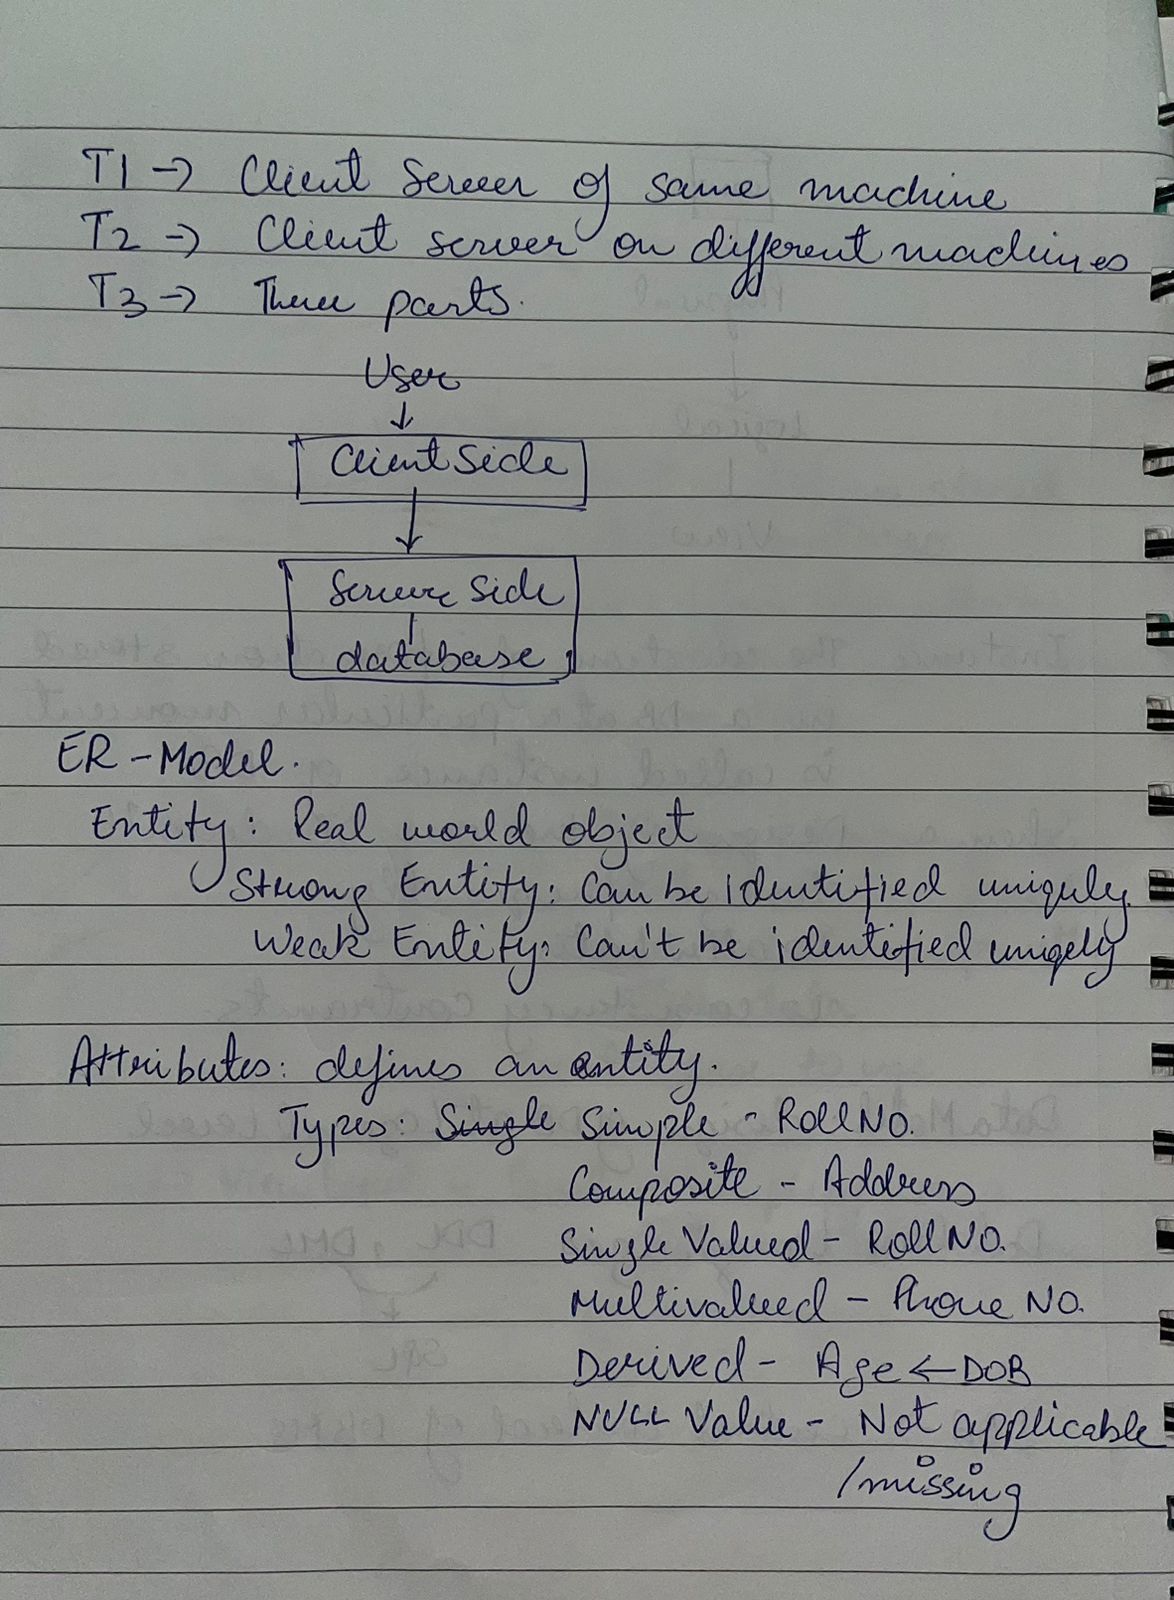 T1 -> Client Server of same machine
T2 -> Client server on different machines
T3 -> Three parts.
User
↓
Client Side
↓
Server Side
database
ER - Model.
Entity: Real world object
Strong Entity: Can be identified uniquely.
Weak Entity: Can't be identified uniqely
Attributes: defines an entity.
Types: Single Simple - Roll No.
Composite - Address
Single Valued - Roll No.
Multivalued - Phone No.
Derived - Age ← DOB
NULL Value - Not applicable
/missing